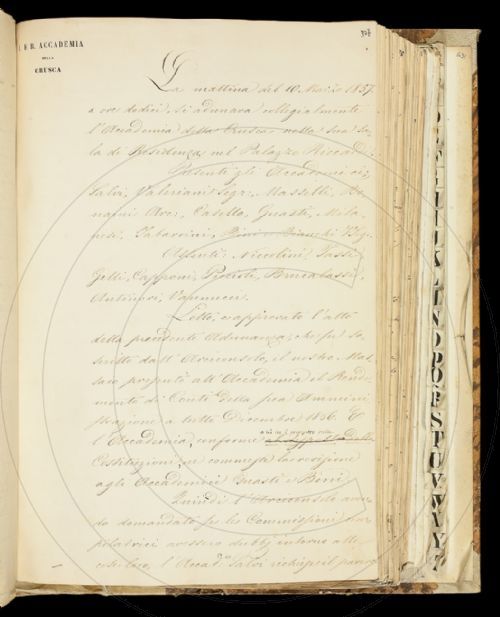 I. E R. ACCADEMIA
DELLA
CRUSCA
La mattina del 10. Marzo 1857.
a ore dodici, si adunava collegialmente
l'Accademia della Crusca nella sua Sa-
la di Residenza, nel Palazzo Riccardi.
Presenti gli Accademici;
Salvi, Valeriani Segr., Masselli, Bo-
naini Arc., Casella, Guasti, Mila-
nesi, Tabarrini,
Assenti: Niccolini,
Gelli, Capponi, Brucalassi,
Antinori, Vannucci.
Letto, e approvato l'atto
della precedente Adunanza, che fu so-
scritto dall'Arciconsolo, il nostro Mas-
saro presentò all'Accademia il Rendi-
mento di Conti della sua Ammini-
strazione a tutto Dicembre 1856. E
l'Accademia, conforme
Costituzioni, ne commesse la revisione
agli Accademici Guasti e Bini.
Quindi l'Arciconsolo aven-
do domandato se le Commissioni com-
pilatrici avessero dubbj intorno alle
l'Accad. Salvi